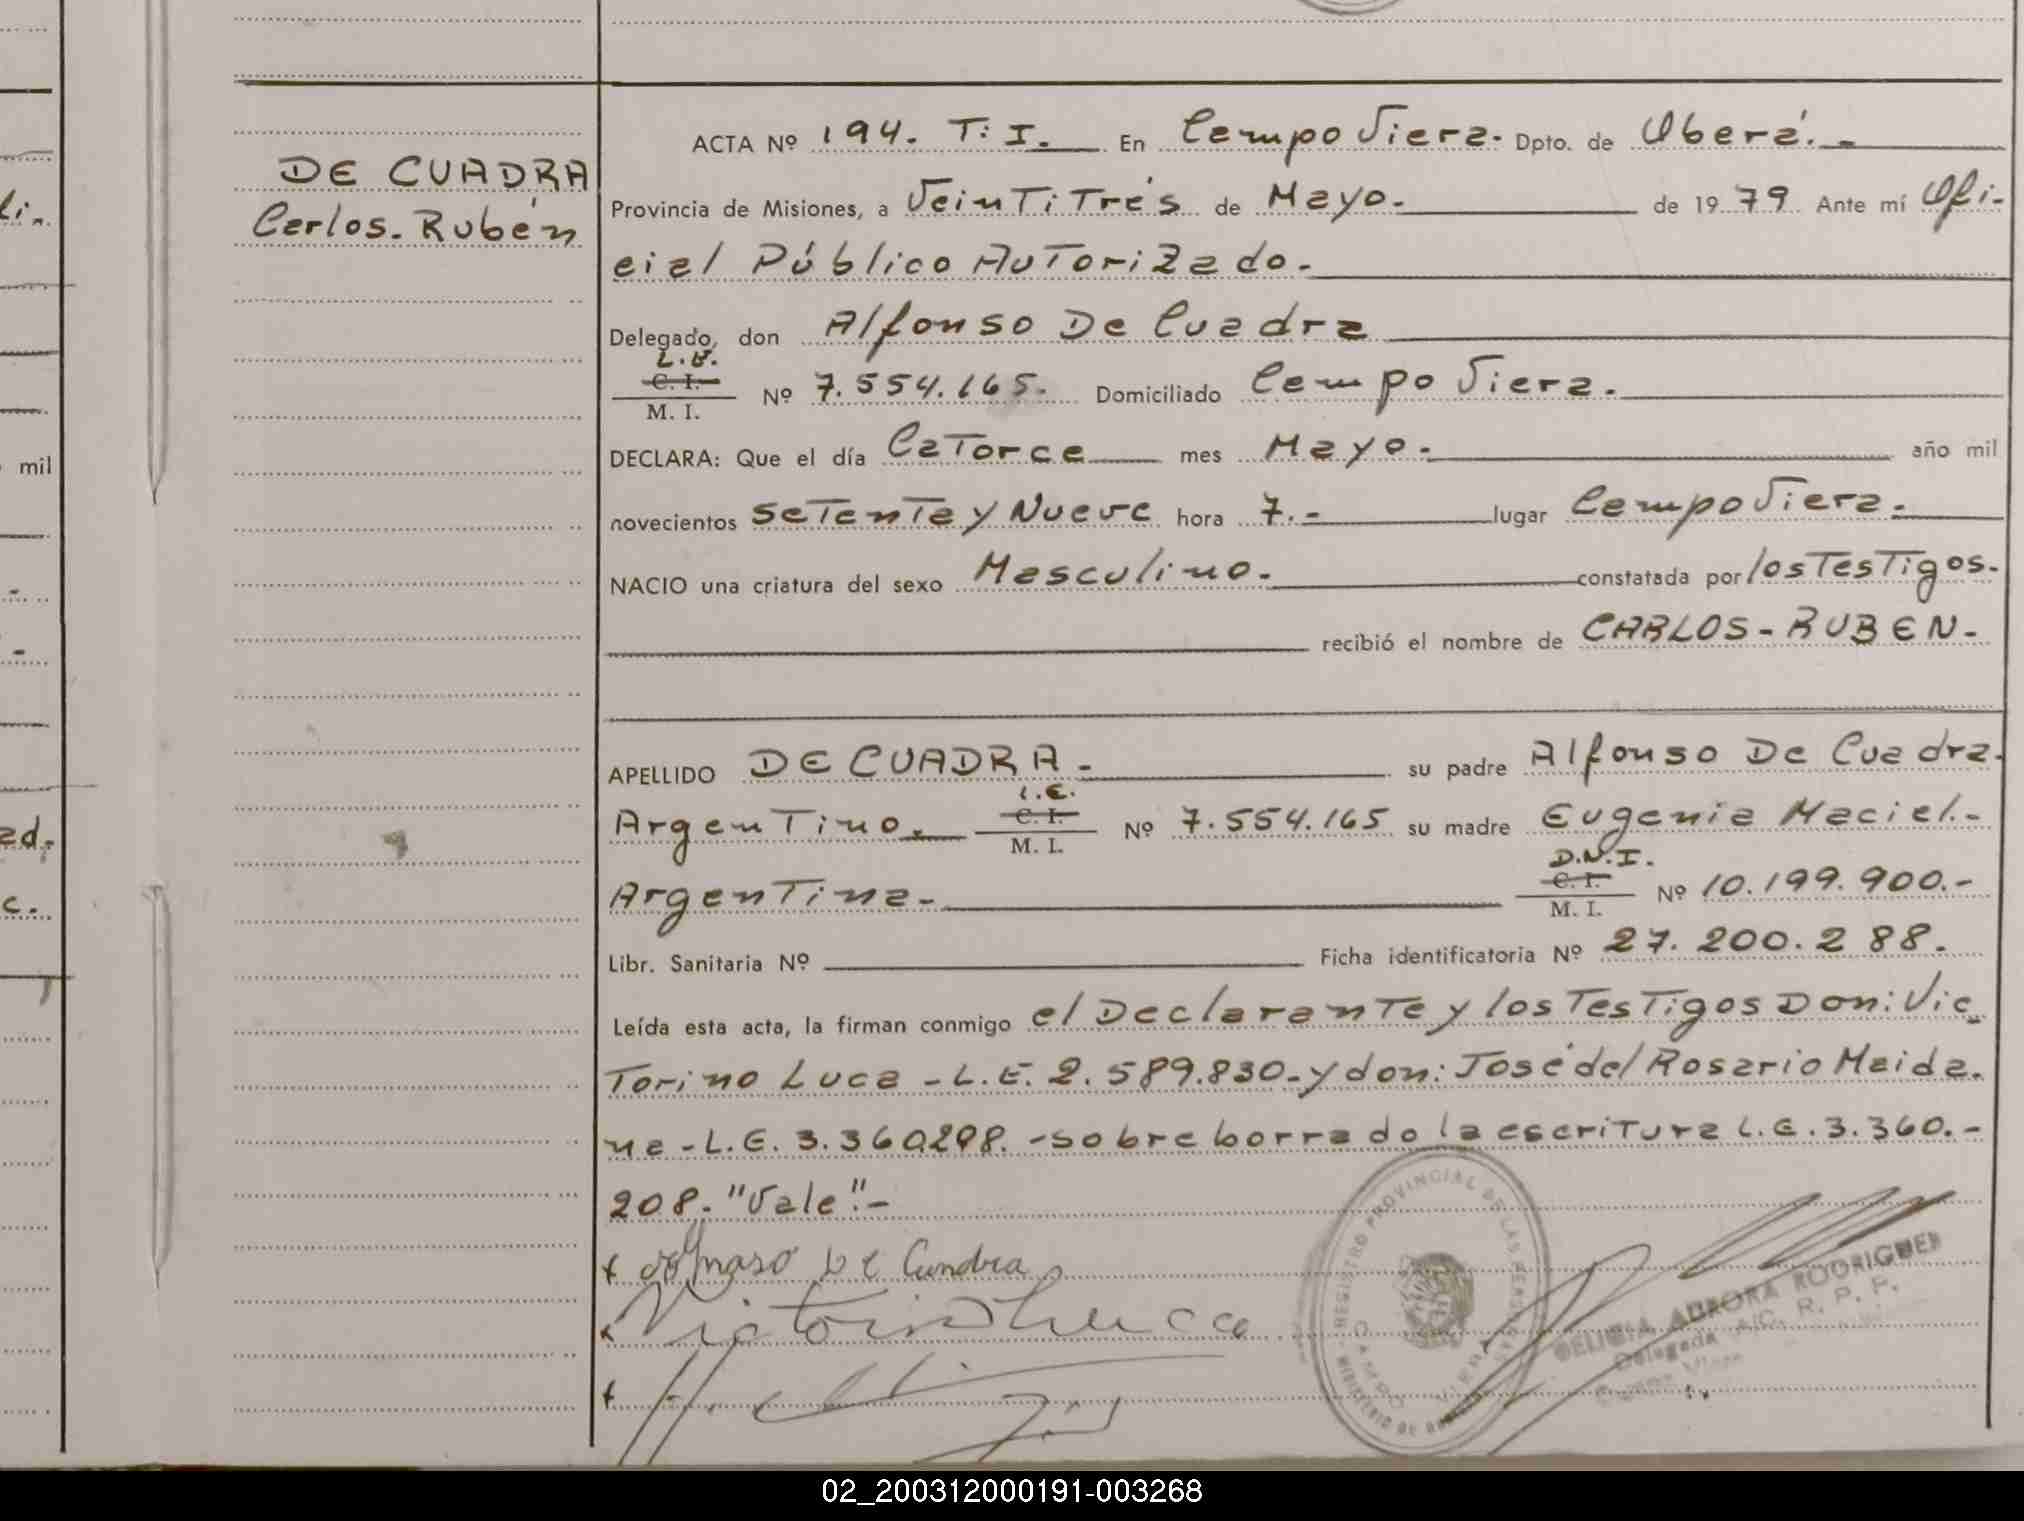 DE CUADRA
Carlos. Rubén
ACTA Nº 194. T: I. En Campo Viera. Dpto. de Oberá. -
Provincia de Misiones, a VeinTiTrés de Mayo. de 19 79 Ante mí Ofi-
cial Público AuTorizado. -
Delegado, don Alfonso De Cuadra
L.E.
C. I.
M. I.
Nº 7.554.165. Domiciliado Campo Viera.
DECLARA: Que el día CaTorce mes Mayo. - año mil
novecientos SeTenTa y Nueve hora 7. - lugar Campo Viera. -
NACIO una criatura del sexo Masculino. - constatada por los TesTigos. -
recibió el nombre de CARLOS - RUBEN -
APELLIDO DE CUADRA - su padre Alfonso De Cuadra.
L.E.
ArgenTino. C. I.
M. I.
Nº 7.554.165 su madre Eugenia Maciel. -
D.N.I.
ArgenTina. - C. I.
M. I.
Nº 10.199.900. -
Libr. Sanitaria Nº Ficha identificatoria Nº 27.200.288.
Leída esta acta, la firman conmigo el DeclaranTe y los TesTigos Don: Vic
Torino Luca - L.E. 2.589.830. - y don: José del Rosario Maida.
na - L.E. 3.360.298. - sobre borrado la escriTura L.E. 3.360. -
208. "Vale". -
De Cuadra
Victorino Luca
REGISTRO PROVINCIAL DE LAS PERSONAS
CAMPO VIERA
MINISTERIO DE
DELICIA AURORA RODRIGUEZ
Delegada A/C. R. P. P.
Campo Viera
02_200312000191-003268